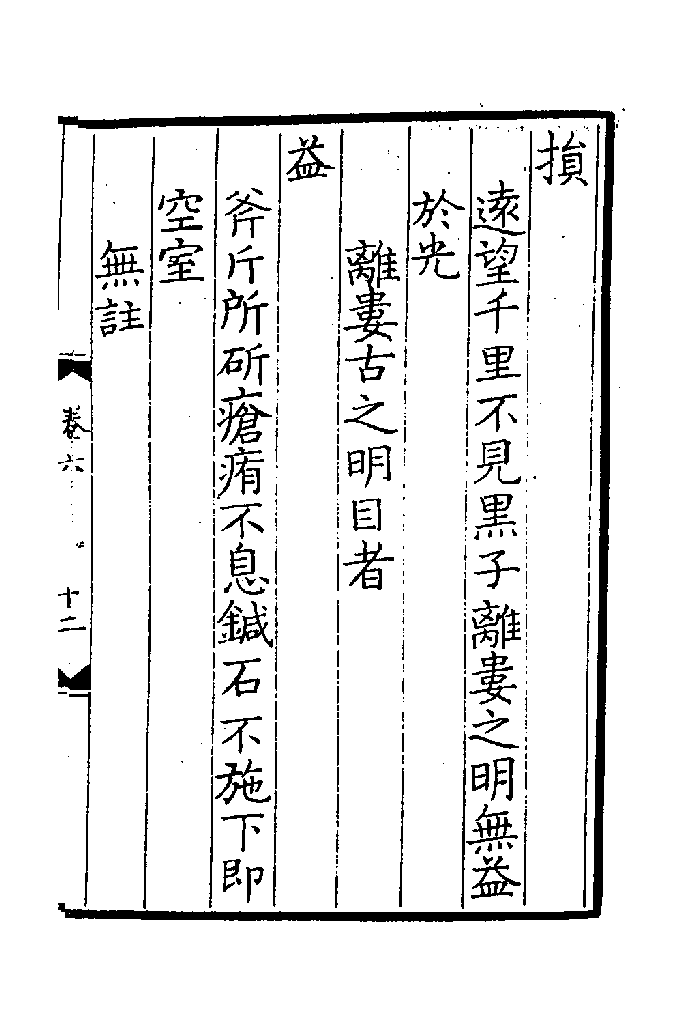 損
遠望千里不見黒子離婁之明無益
於光
離婁古之明目者
益
斧斤所斫瘡痏不息鍼石不施下即
空室
無註
卷六
十二